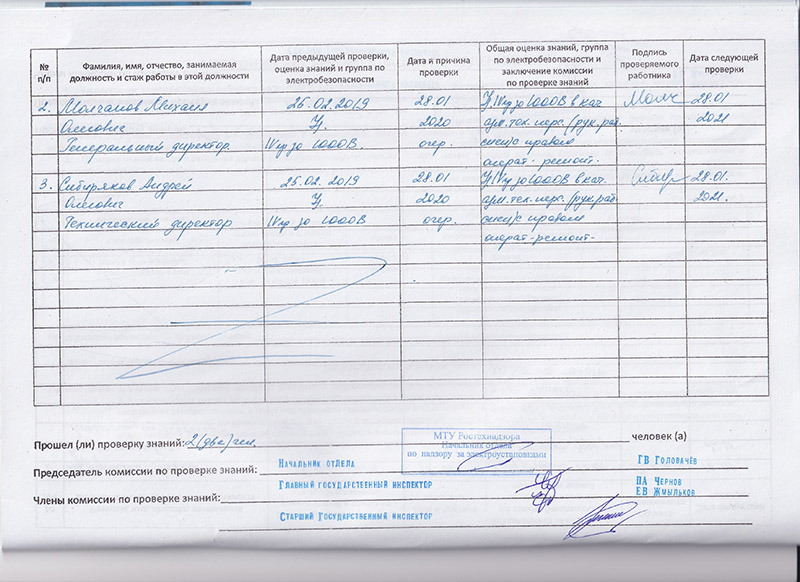 № п/п
Фамилия, имя, отчество, занимаемая должность и стаж работы в этой должности
Дата предыдущей проверки, оценка знаний и группа по электробезопасности
Дата и причина проверки
Общая оценка знаний, группа по электробезопасности и заключение комиссии по проверке знаний
Подпись проверяемого работника
Дата следующей проверки
2. Молчанов Михаил 25.02.2019 28.01 У, IV гр до 1000В в кач. Молч 28.01
Олегович У. 2020 адм. тех. перс. (рук. раб. 2021
Генеральный директор. IV гр до 1000В. очер. с правом
операт-ремонт.
3. Сибиряков Андрей 25.02.2019 28.01 У, IV гр до 1000В в кач. 28.01.
Олегович У. 2020 адм. тех. перс. (рук. раб. 2021.
Технический директор IV гр до 1000В очер. с правом
операт-ремонт-
МТУ Ростехнадзора
Начальник отдела
по надзору за электроустановками
Прошел (ли) проверку знаний: 2 (два) чел. человек (а)
Председатель комиссии по проверке знаний: Начальник отдела ГВ Головачёв
Главный государственный инспектор ПА Чернов
Члены комиссии по проверке знаний: ЕВ Жмыльков
Старший Государственный инспектор